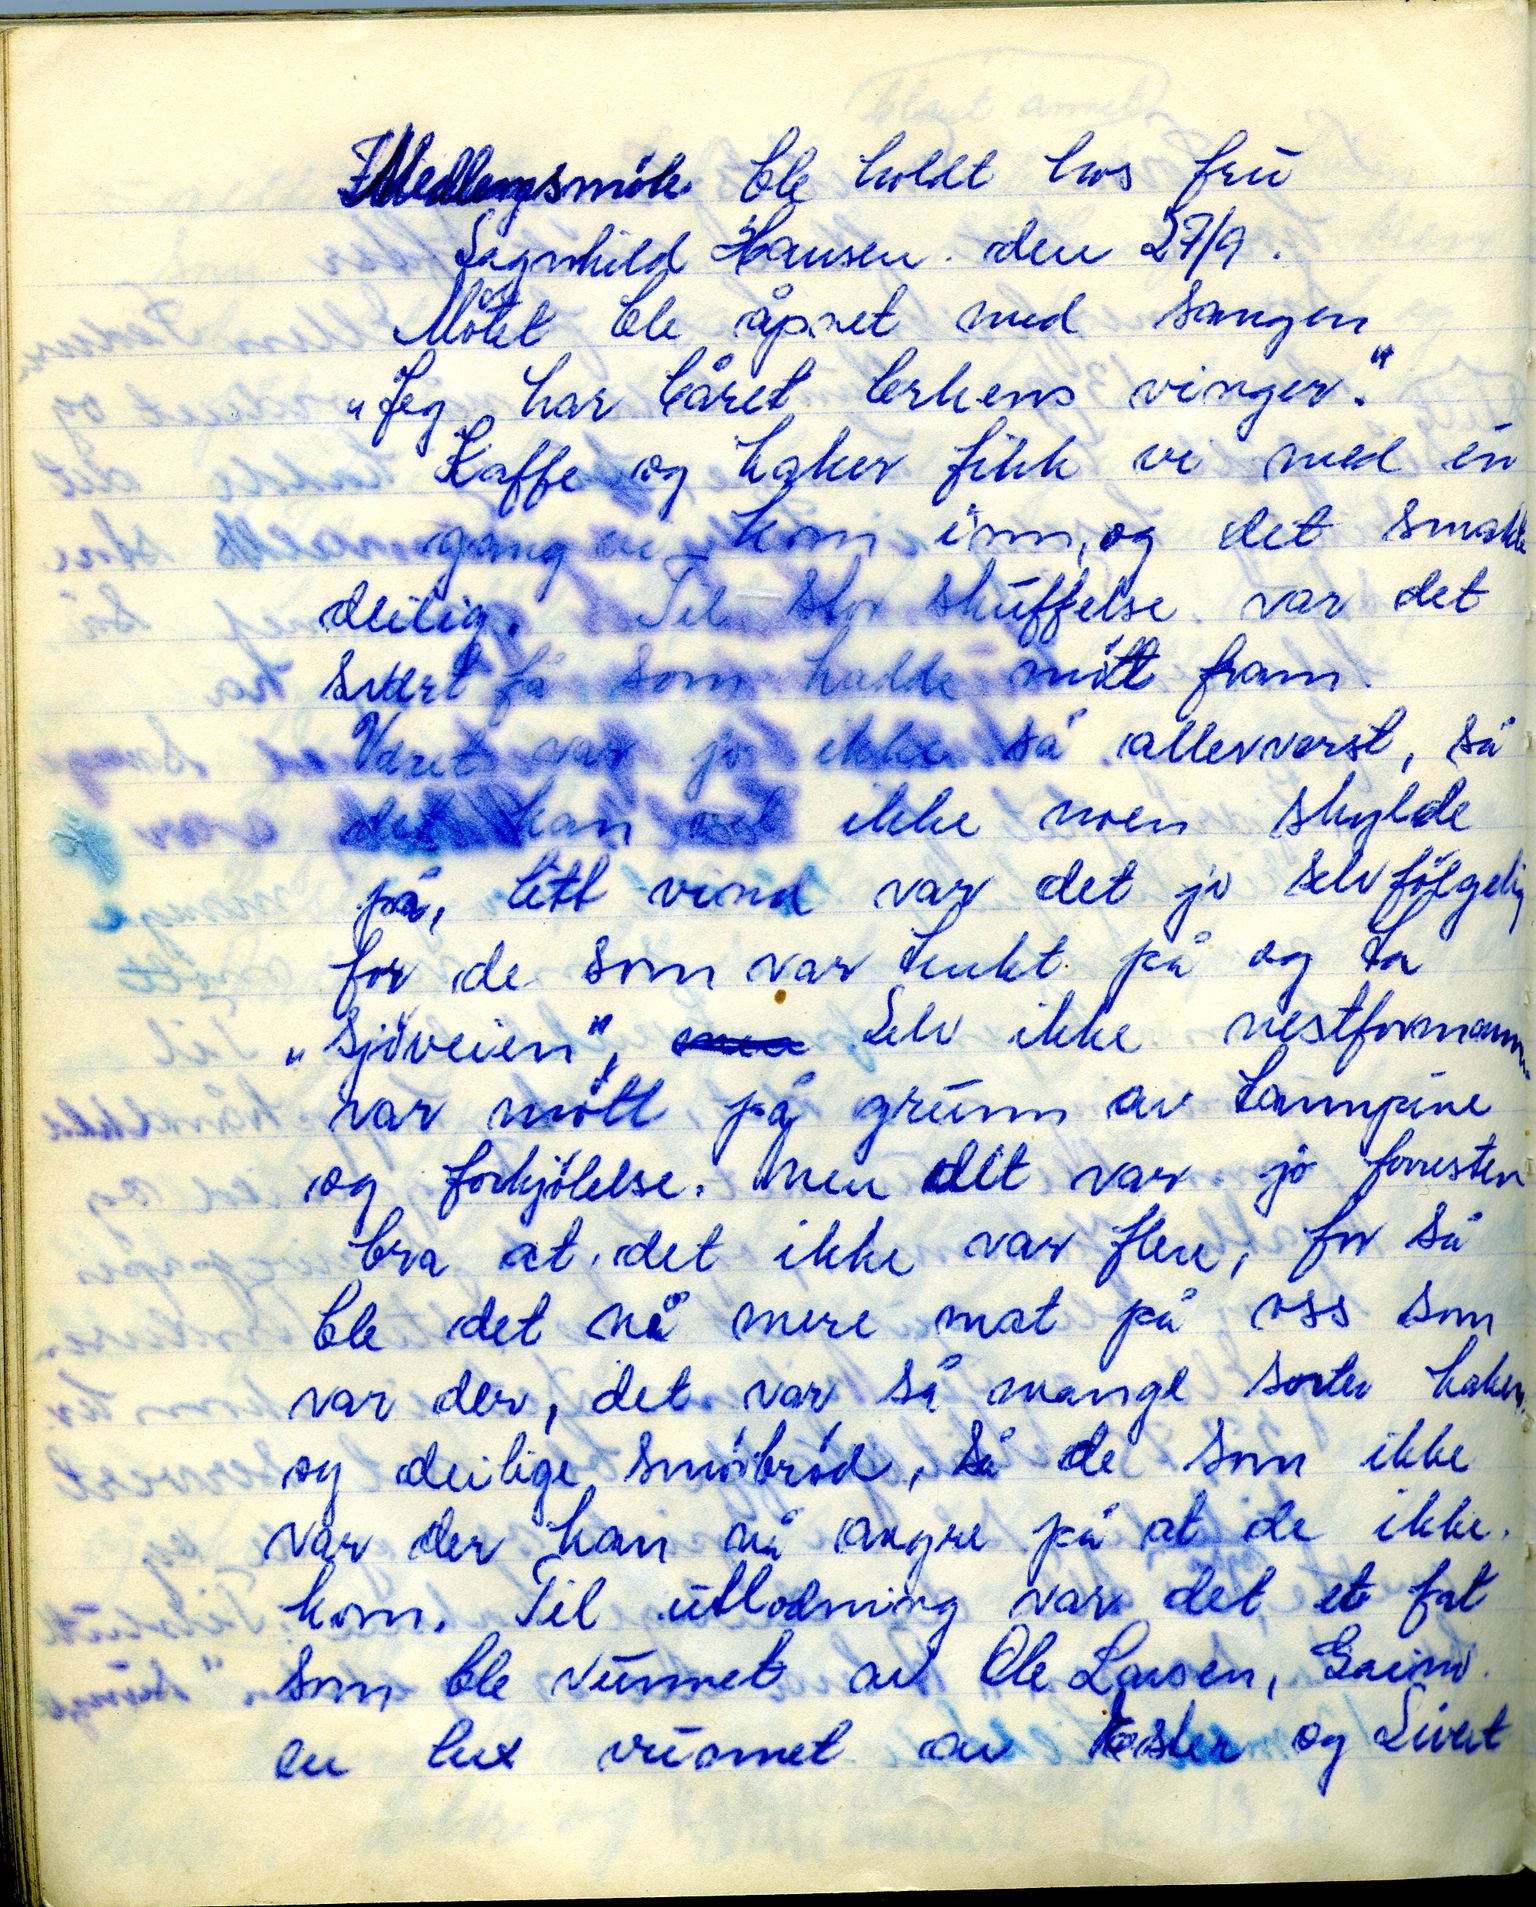 Medlemsmøte ble holdt hos fru
Hansen den 27/9.
Møtet ble åpnet med sangen
„Jeg har båret lerkens vinger."
Kaffe og kaker fikk vi med én
gang vi kom inn, og det smakte
deilig. Til stor skuffelse var det
svært få som hadde mött fram.
Været var jo ikke så allerverst, så
det kan vel ikke noen skylde
på, litt vind var det jo selvfölgelig
for de som var tenkt på og ta
„sjöveien", Selv ikke nestformann
var mött på grunn av tannpine
og forkjölelse. Men det var jo forresten
bra at det ikke var flere, for så
ble det nå mere mat på oss som
var der, det var så mange sorter kaker,
og deilige smörbröd, så de som ikke
var der kan nå angre på at de ikke
kom. Til utlodning var det et fat
som ble vunnet av Ole Larsen,
en lux vunnet av og Sivert